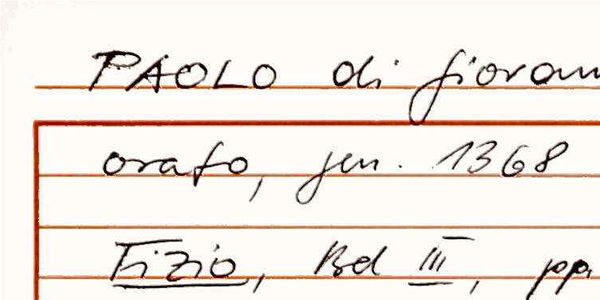 PAOLO di Giovan
orafo, gen. 1368
Fizio, Bd III, pp.